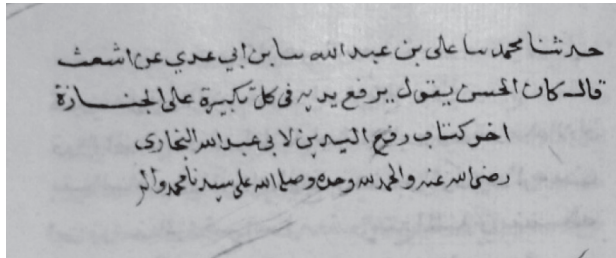 حدثنا محمد سا على بن عبد الله سا بن ابي عدي عن اشعث
قال كان الحسن يقول يرفع يديه فى كل تكبيرة على الجنازة
اخر كتاب رفع اليدين لابى عبد الله البخارى
رضى الله عنه والحمد لله وحده وصلى الله على سيدنا محمد واله